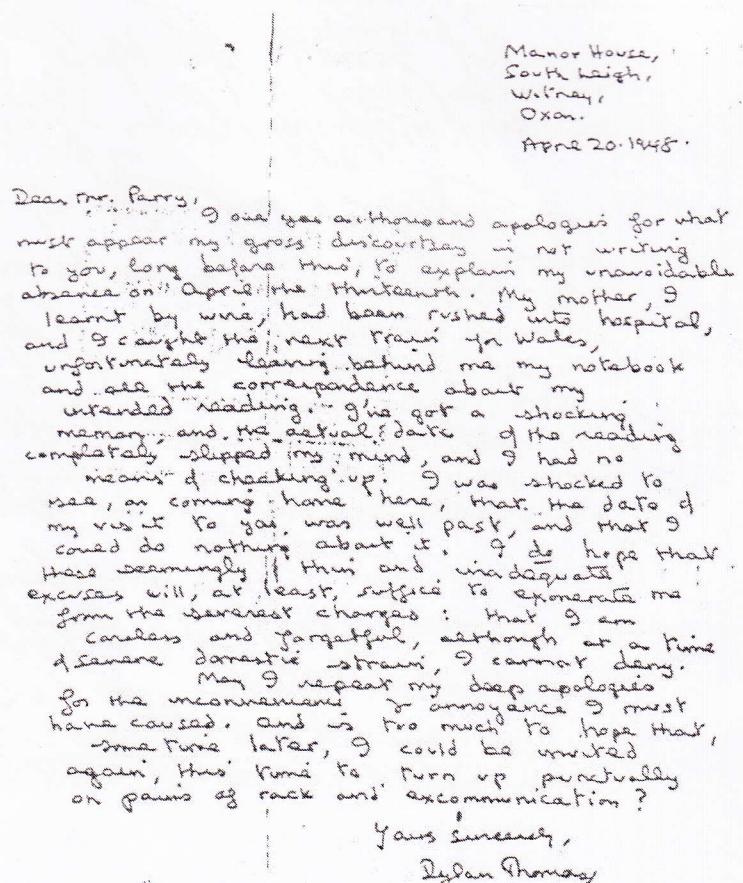 Manor House,
South Leigh,
Witney,
Oxon.
April 20. 1948.
Dear Mr. Parry,
I owe you a thousand apologies for what
must appear my gross discourtesy in not writing
to you, long before this, to explain my unavoidable
absence on April the thirteenth. My mother, I
learnt by wire, had been rushed into hospital,
and I caught the next train for Wales,
unfortunately leaving behind me my notebook
and all the correspondence about my
intended reading. I've got a shocking
memory, and the actual date of the reading
completely slipped my mind, and I had no
means of checking up. I was shocked to
see, on coming home here, that the date of
my visit to you was well past, and that I
could do nothing about it. I do hope that
these seemingly thin and inadequate
excuses will, at least, suffice to exonerate me
from the severest charges: that I am
careless and forgetful, although at a time
of severe domestic strain, I cannot deny.
May I repeat my deep apologies
for the inconvenience & annoyance I must
have caused. And is too much to hope that,
some time later, I could be invited
again, this time to turn up punctually
on pain of rack and excommunication?
Yours sincerely,
Dylan Thomas